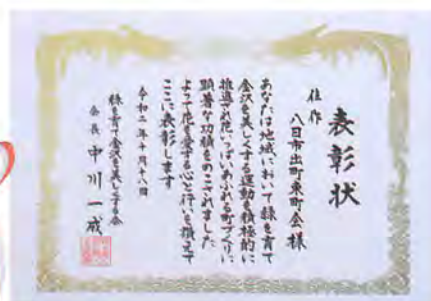 表彰状
佳作
八日市出町東町会様
あなたは地域において緑を育て
金沢を美しくする運動を積極的に
推進され花いっぱいあふれる町づくりに
顕著な功績をのこされました
よって花を愛する心と行いを讃えて
ここに表彰します
令和二年十月十八日
緑を育て金沢を美しくする会
会長 中川一成